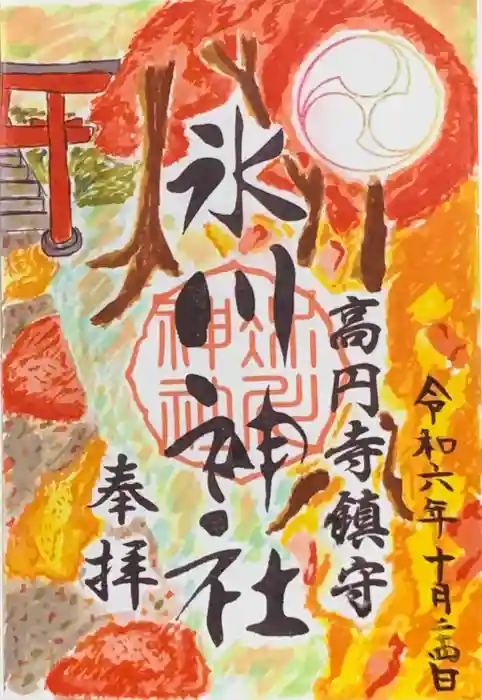 令和六年十月二四日
高円寺鎮守
氷川神社
氷川
神社
奉拝